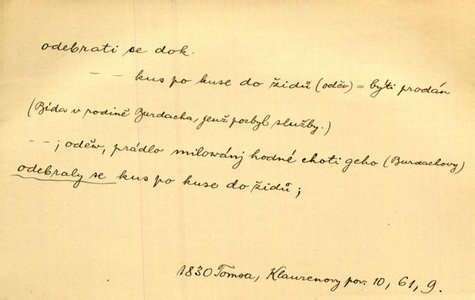 odebrati se dok.
– – kus po kuse do židů (oděv) = býti prodán
(Bída v rodině Burdacha, jenž pozbyl služby.)
– –; oděw, prádlo milowánj hodné choti geho (Burdachovy)
odebraly se kus po kuse do židů;
1830 Tomsa, Klaurenovy pov. 10, 61, 9.